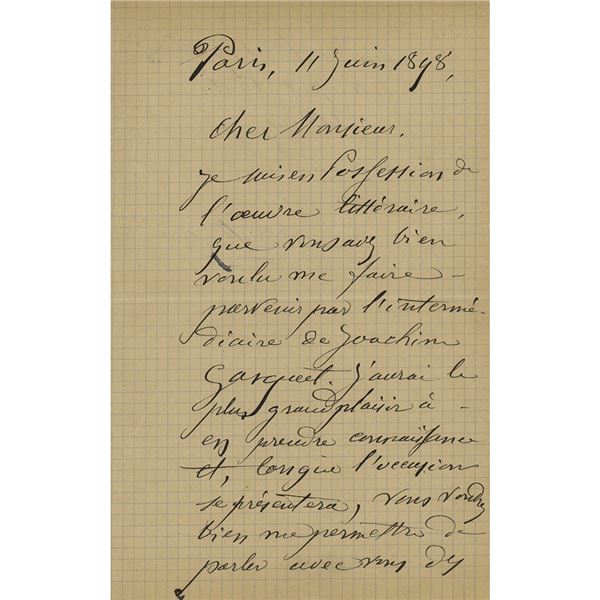 Paris, 11 Juin 1898,
Cher Monsieur.
je suis en Possession de
l'œuvre littéraire,
que vous avez bien
voulu me faire –
parvenir par l'intermé-
diaire de Joachim
Gasquet. J'aurai le
plus grand plaisir à –
en prendre connaissance
et, lorsque l'occasion
se présentera, vous voudrez
bien me permettre de
parler avec vous des